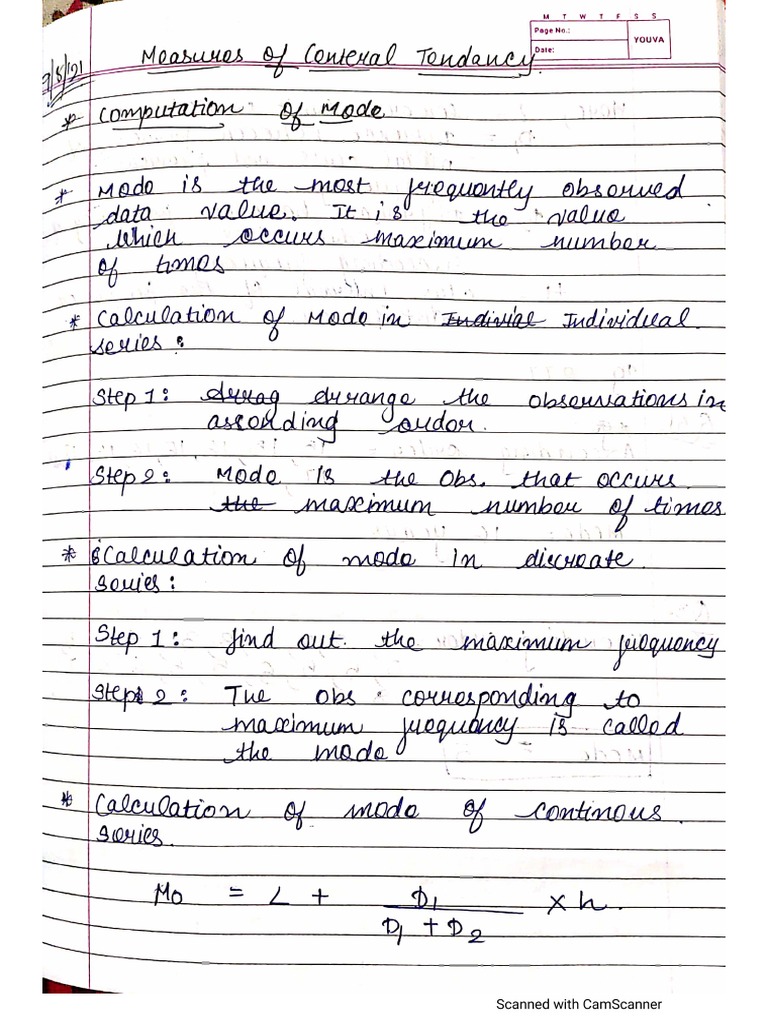 M T W T F S S
Page No.:
Date:
YOUVA
7/8/21
Measures of Centeral Tendancy.
* Computation of Mode
* Mode is the most frequently observed
data value. It is the value
which occurs maximum number
of times
* Calculation of Mode in Indivial Individual
series:
Step 1: Arrag Arrange the observations in
assending order.
Step 2: Mode is the Obs. that occurs
the maximum number of times
* Calculation of mode in discreate
series:
Step 1: find out the maximum frequency
Step 2: The obs. corresponding to
maximum frequency is called
the mode
* Calculation of mode of continous
series.
Mo = L + D1 / D1 + D2 × h.
Scanned with CamScanner